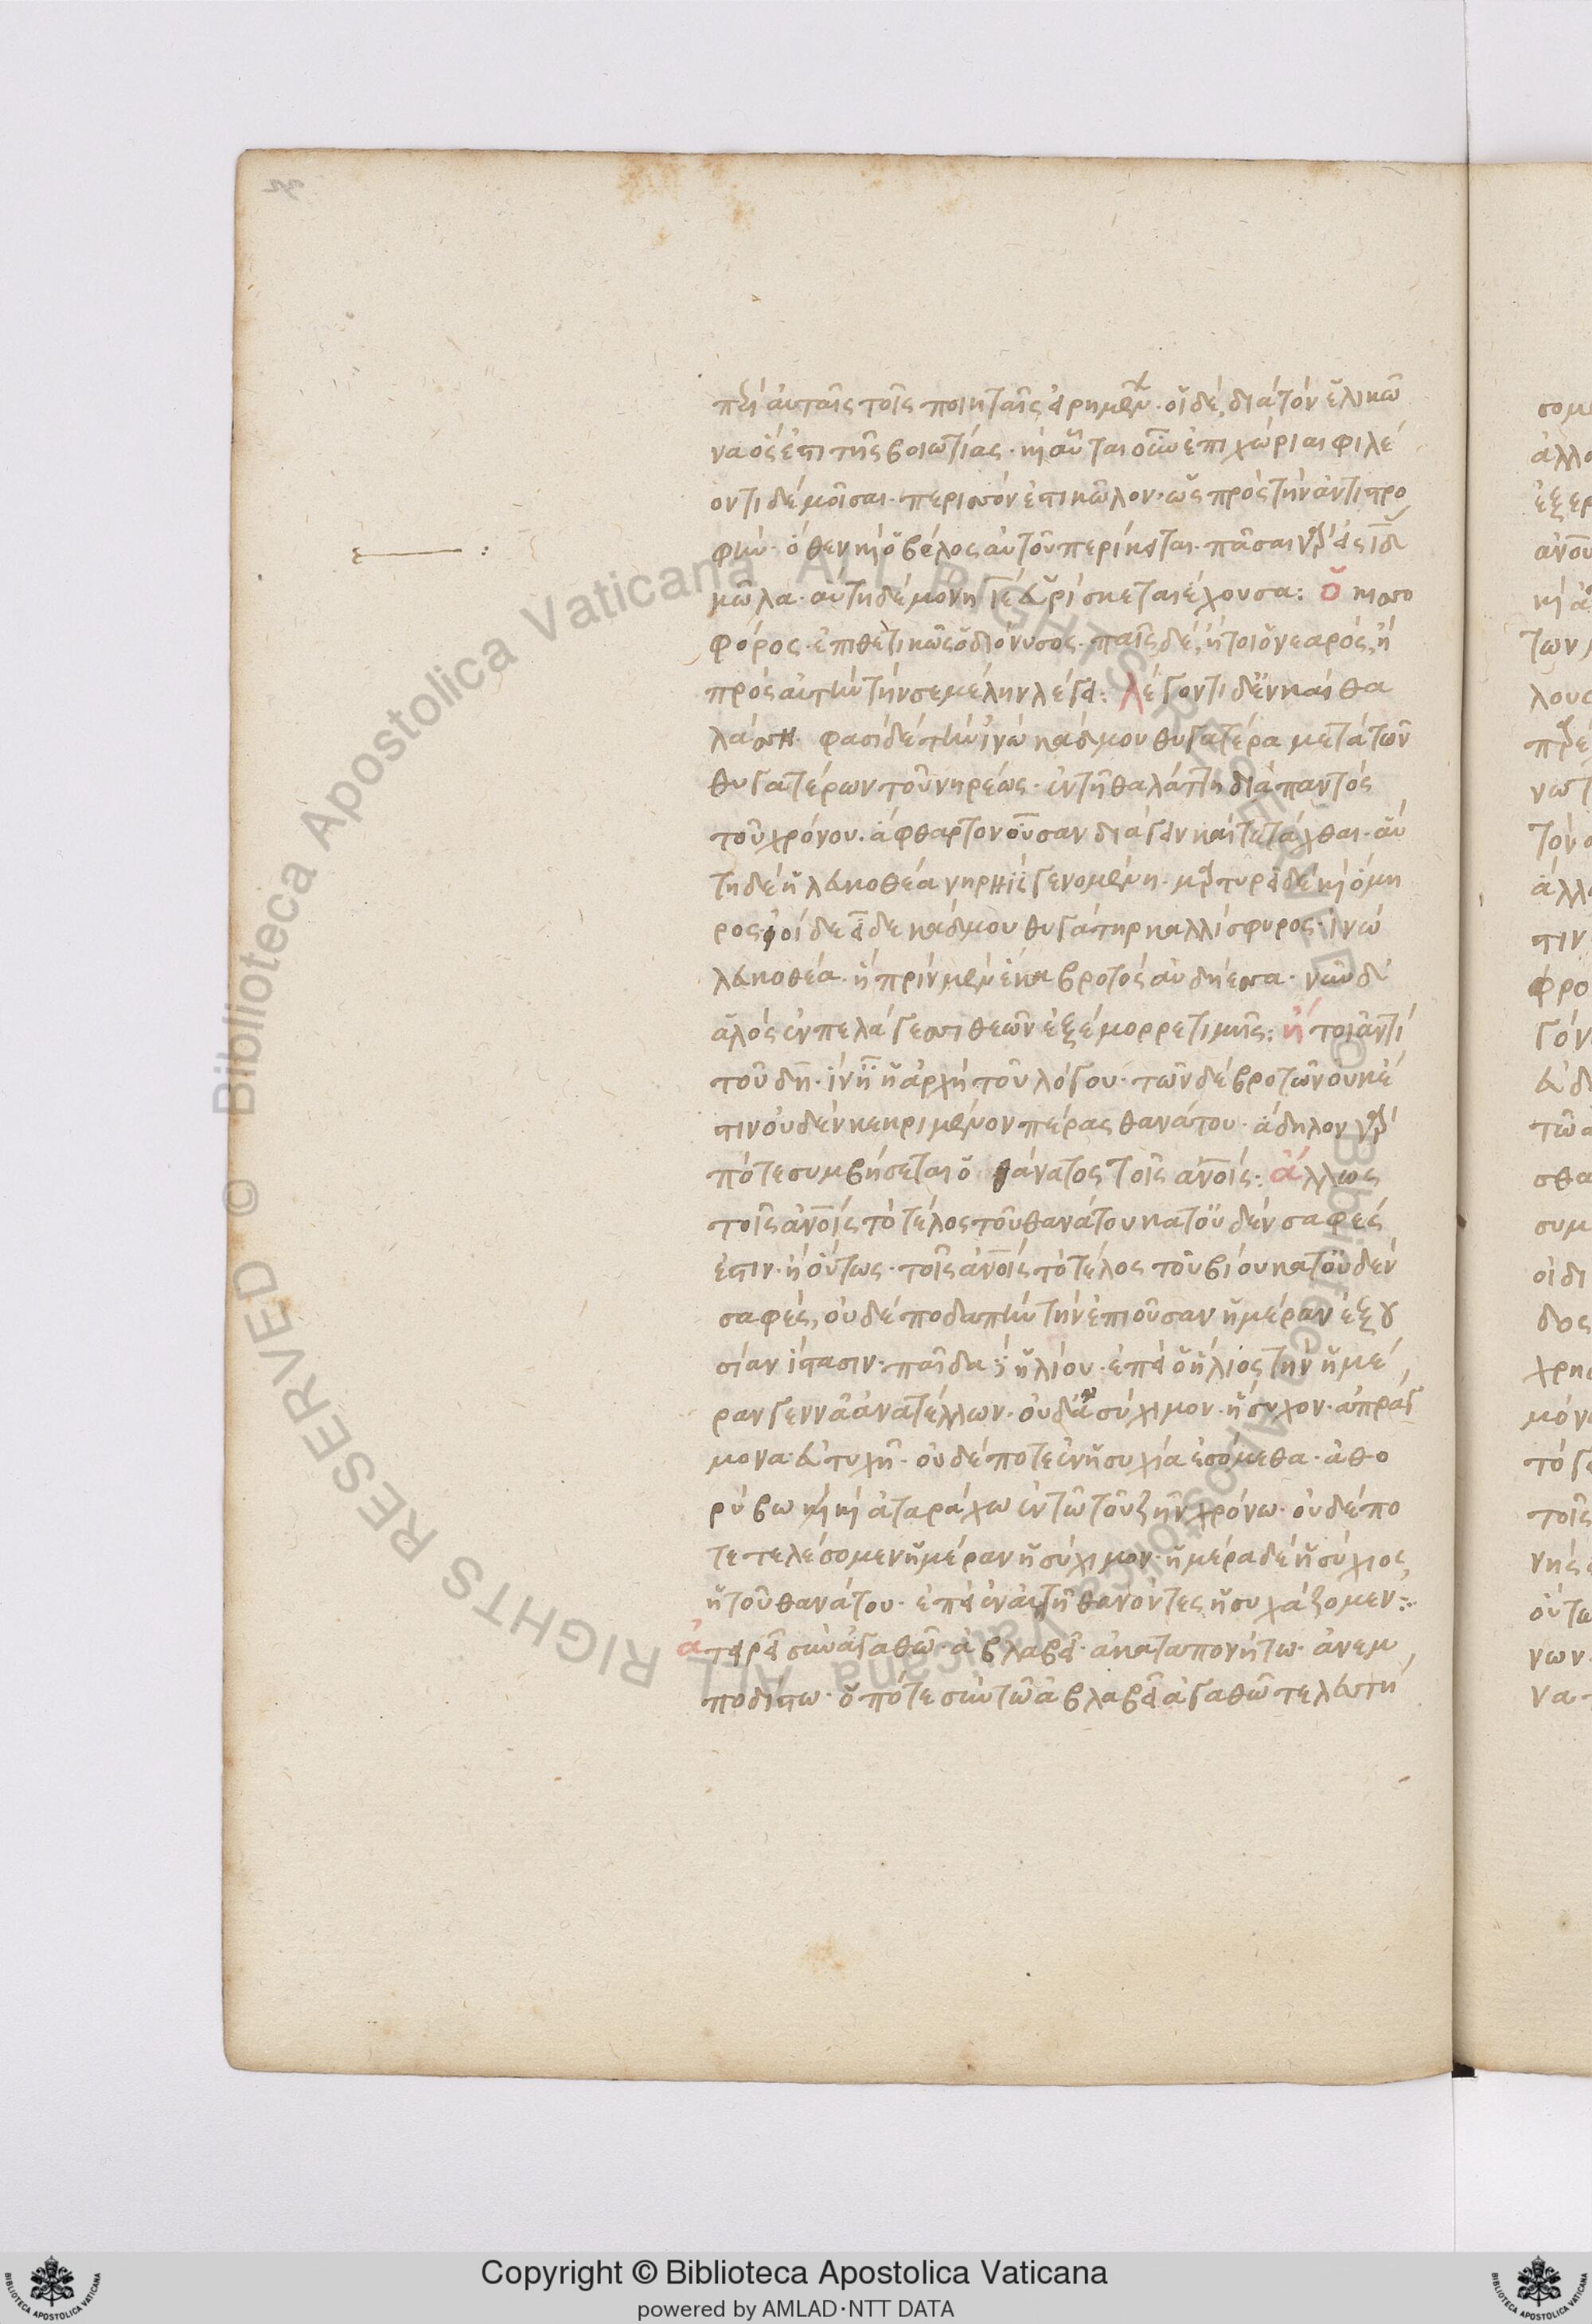 περὶ αὐταῖς τοῖς ποιηταῖς εἰρημένων· οἱ δὲ, διὰ τὸν ἑλικῶ
να ὅς ἐστι τῆς βοιωτίας· καὶ αὗται οὖν ἐπιχώριαι φιλέ
οντι δὲ μοῖσαι· περισσόν ἐστι κῶλον· ὡς πρὸς τὴν ἀντιστρο
φήν· ὅθεν καὶ ὀβελὸς αὐτοῦ περίκειται· πᾶσαι γὰρ εἰσὶ ιδ
κῶλα· αὕτη δὲ μόνη ιε εὑρίσκεται ἔχουσα: ὁ κισσο
φόρος· ἐπιθετικῶς ὁ διόνυσος· παῖς δὲ, ἤτοι ὁ νεαρός, ἢ
πρὸς αὐτὴν τὴν σεμέλην λέγει: λέγοντι δ' ἐν καὶ θα
λάσσῃ· φασὶ δὲ τὴν ἰνὼ κάδμου θυγατέρα μετὰ τῶν
θυγατέρων τοῦ νηρέως· ἐν τῇ θαλάττῃ διὰ παντὸς
τοῦ χρόνου· ἄφθαρτον οὖσαν διάγειν καὶ τετάχθαι· αὕ
τη δὲ ἡ λευκοθέα νηρηῒς γενομένη· μαρτυρεῖ δὲ καὶ ὅμη
ρος οἱ δε εἶδε κάδμου θυγάτηρ καλλίσφυρος· ἰνὼ
λευκοθέα· ἣ πρὶν μὲν ἔην βροτὸς αὐδήεσσα· νῦν δ'
ἁλὸς ἐν πελάγεσσι θεῶν ἐξέμορρε τιμῆς: ἤτοι ἀντὶ
τοῦ δή· ἵν' ᾖ ἡ ἀρχὴ τοῦ λόγου· τῶν δὲ βροτῶν οὐκ ἔ
στιν οὐδὲν κεκριμένον πέρας θανάτου· ἄδηλον γὰρ
πότε συμβήσεται ὁ θάνατος τοῖς ἀνοις: ἄλλως
τοῖς ἀνοις τὸ τέλος τοῦ θανάτου κατ' οὐδὲν σαφές
ἐστιν· ἢ οὕτως· τοῖς ἀνοις τὸ τέλος τοῦ βίου κατ' οὐδὲν
σαφές, οὐδὲ ποδαπὴν τὴν ἐπιοῦσαν ἡμέραν ἕξου
σιν ἴσασιν· παῖδα ἡλίου· ἐπεὶ ὁ ἥλιος τὴν ἡμέ
ραν γεννᾶ ἀνατέλλων· οὐδ' ἀσύχιμον· ἥσυχον· ἀπράγ
μονα εὐτυχῆ· οὐδέποτε ἐν ἡσυχία ἐσόμεθα· ἀθο
ρύβω καὶ ἀταράχω ἐν τῶ τοῦ ζῆν χρόνω· οὐδέπο
τε τελέσομεν ἡμέραν ἡσύχιμον· ἡμέρα δὲ ἡσύχιος
ἡ τοῦ θανάτου· ἐπεὶ ἐν αὐτῇ θανόντες ἡσυχάζομεν:
ἀτειρεῖ σὺν ἀγαθῶ· ἀβλαβεῖ· ἀκαταπονήτω· ἀνεμ
ποδίστω· ὁπότε σὺν τῶ ἀβλαβεῖ ἀγαθῶ τελευτή
Copyright © Biblioteca Apostolica Vaticana
powered by AMLAD·NTT DATA